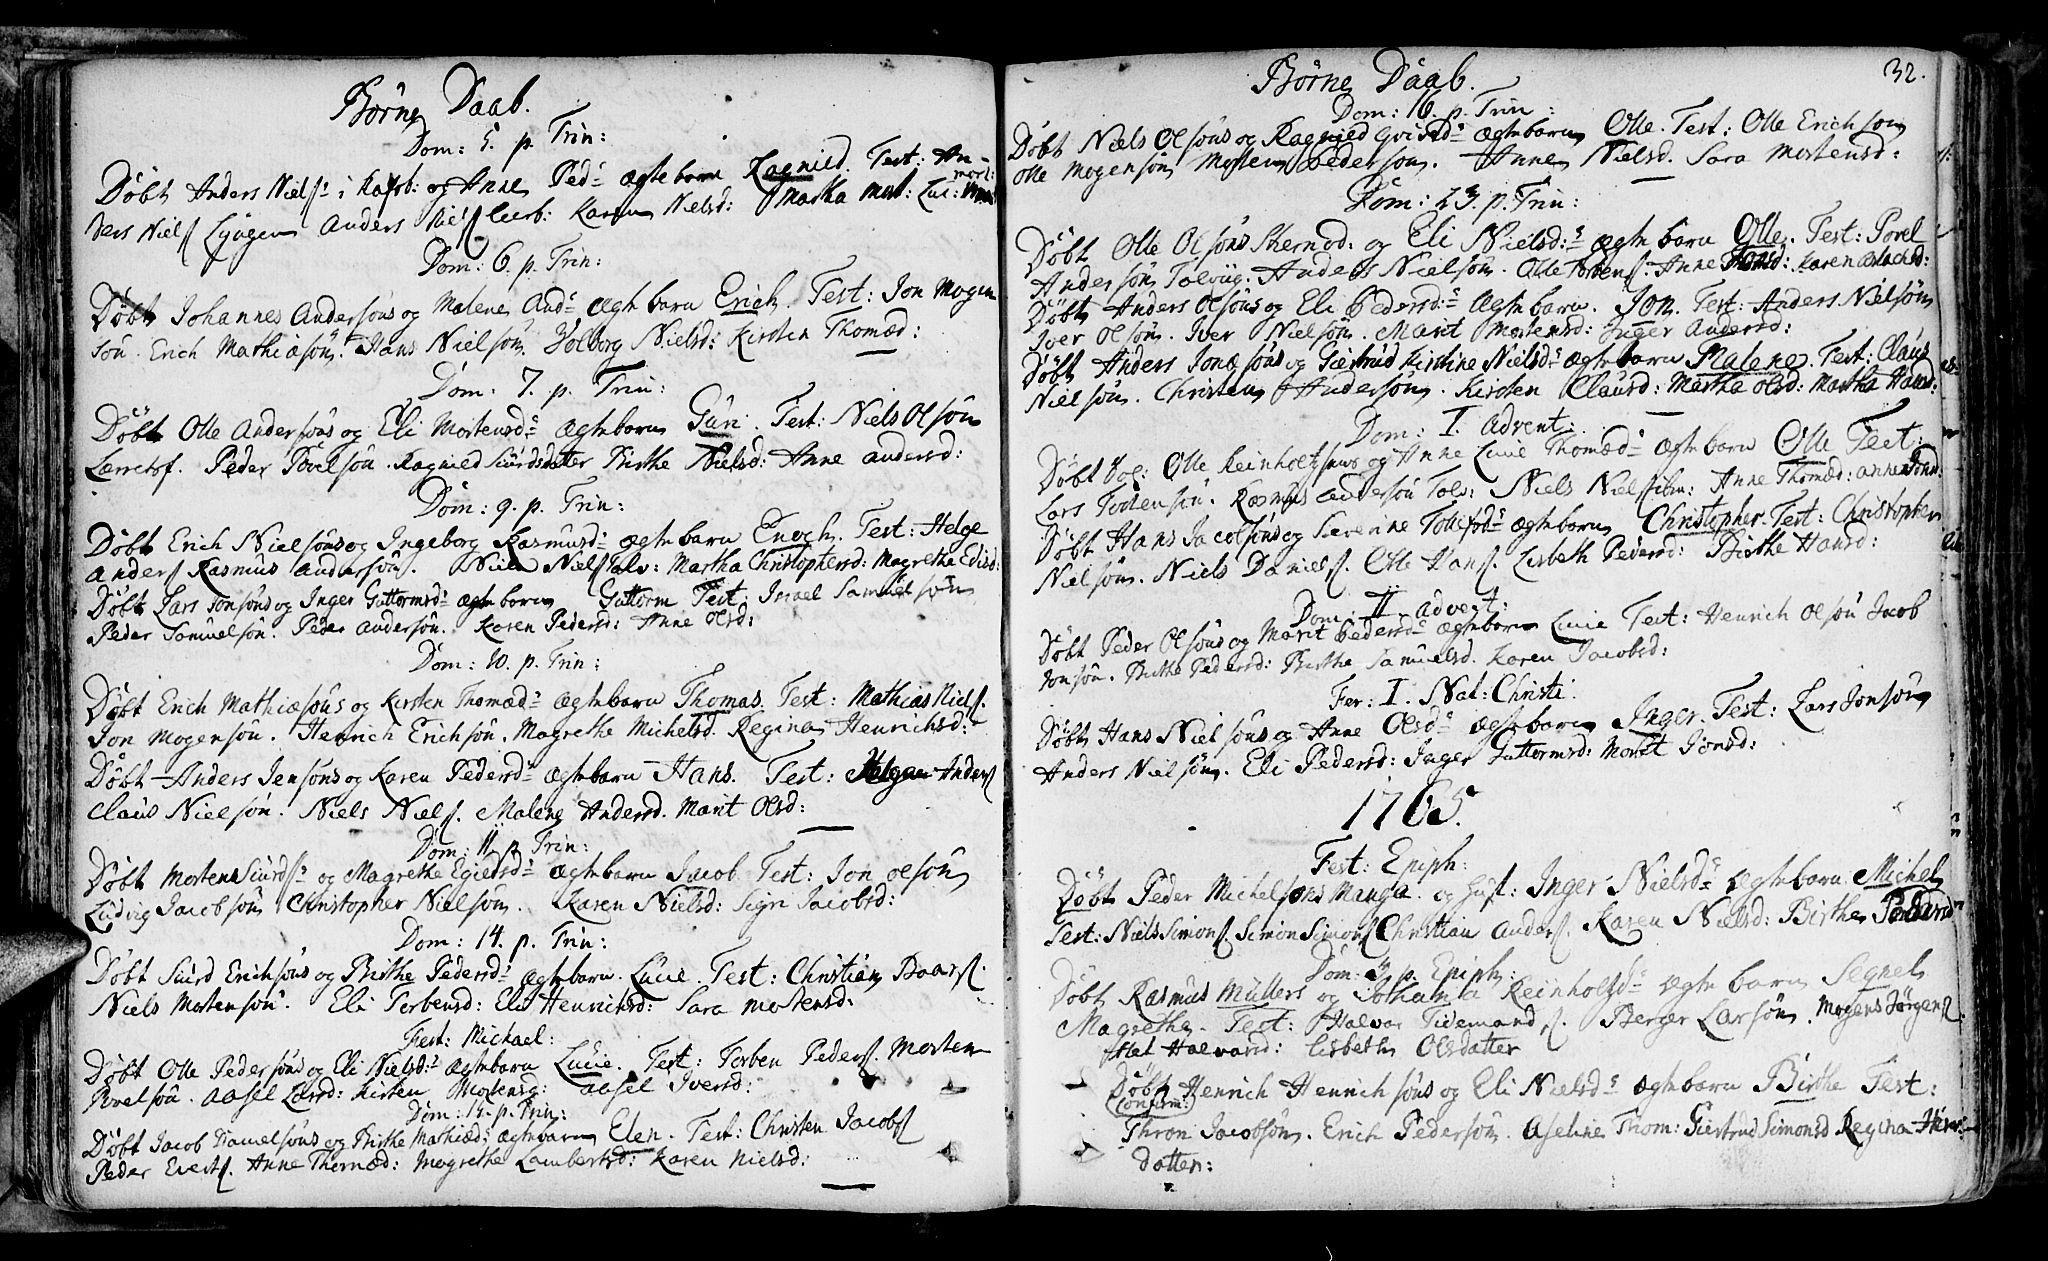 Børne Daab.
Dom: 5. p. Trin:
Døbt Anders Niels: i og Anne Ped: ægte barn Ragnild. Test: An-
ders Niels Lyngen Anders Niels Karen Nielsd: Martha Mort:
Dom: 6. p. Trin:
Døbt Johannes Andersøns og Malene And: ægte barn Erich. Test: Jon Mogen
søn. Erich Mathiasøn. Hans Nielsøn. Volborg Nielsd: Kirsten Thomæd:
Dom: 7. p. Trin:
Døbt Olle Andersøns og Eli Mortensd: ægte barn Guri. Test: Niels Olsøn
Peder Povelsøn. Ragnild Siurdsdatter Birthe Nielsd: Anne Andersd:
Dom: 9. p. Trin:
Døbt Erich Nielsøns og Ingeborg Rasmusd: ægte barn Enoch. Test: Helge
Anders Rasmus Andersøn. Niels Niels Martha Christophersd: Magrethe
Døbt Lars Jonsøns og Inger Guttormsd: ægte barn Guttorm Test: Israel Samuelsøn
Peder Samuelsøn. Peder Andersøn. Karen Pedersd: Anne Olsd:
Dom: 10. p. Trin:
Døbt Erich Mathiæsøns og Kirsten Thomæd: ægte barn Thomas. Test: Mathias Niels.
Jon Mogensøn. Henrich Erichsøn. Magrethe Michelsd. Regina Henrichsd:
Døbt Anders Jensøns og Karen Pedersd: ægte barn Hans. Test: Anders
Claus Nielsøn. Niels Niels. Malene Andersd. Marit Olsd:
Dom: 11. p. Trin:
Døbt Morten Siurds: og Magrethe ægte barn Jacob. Test: Jon Olsøn
Ludvig Jacobsøn Christopher Nielsøn. Karen Nielsd: Sigri Jacobsd:
Dom: 14. p. Trin:
Døbt Siurd Erichsøns og Birthe Pedersd: ægte barn. Lucie. Test: Christian Baars.
Niels Mortensøn. Eli Torbensd: Eli Henrichsd: Sara Mortensd:
Fest: Michael:
Døbt Olle Pedersøns og Eli Nielsd: ægte barn Lucie. Test: Torben Peders. Morten
Povelsøn. Aasel Larsd: Kirsten Mortensd: Aasel Iversd:
Dom: 15. p. Trin:
Døbt Jacob Danielsøns og Birthe Mathiæd: ægte barn Elen. Test: Christen Jacobs
Peder Everts. Anne Thomæd: Magrethe Lambertsd: Karen Nielsd:
32.
Børne Daab.
Dom: 16. p. Trin:
Døbt Niels Olsøns og Ragnild ægte barn Olle. Test: Olle Erichsøn
Olle Mogensøn Morten Pedersøn. Anne Nielsd. Sara Mortensd:
Dom: 23. p. Trin:
Døbt Olle Olsøns og Eli Nielsd: ægte barn Olle. Test: Povel
Andersøn Tolvig. Anders Nielsøn. Olle Torbens. Anne Karen
Døbt Anders Olsøns og Eli Pedersd: ægte barn. Jon. Test: Anders Nielsøn
Iver Olsøn. Iver Nielsøn. Marit Mortensd: Inger Andersd:
Døbt Anders Jonæsøns og Giertrud Kirstine Nielsd: ægte barn Malene. Test: Claus
Nielsøn. Christen Andersøn. Kirsten Clausd: Martha Olsd: Martha Hansd:
Dom: I. Advent:
Døbt Olle Reinholtsøns og Anne Lucie Thomæd: ægte barn Olle Test:
Lars Rasmus Andersøn Tolv: Niels Niels Anne Thomæd: Anne Jonsd.
Døbt Hans Jacobsøns og Severine ægte barn Christopher. Test: Christopher
Nielsøn. Niels Daniels. Olle Hans. Lisbeth Pedersd: Birthe Hansd:
Dom II. Advent:
Døbt Peder Olsøns og Marit Pedersd: ægte barn Lucie Test: Henrich Olsøn Jacob
Jonsøn. Birthe Pedersd: Birthe Samuelsd. Karen Jacobsd:
Fer: I. Nat: Christi.
Døbt Hans Nielsøns og Anne Olsd: ægte barn Inger. Test: Lars Jonsøn
Anders Nielsøn. Eli Pedersd: Inger Guttormsd: Marit Jonsd:
1765.
Fest: Epiph:
Døbt Peder Michelsøns Mauga. og Hust: Inger Nielsd: ægte barn Michel
Test: Niels Simons. Simon Simons Christian Anders. Karen Nielsd: Birthe
Dom: p. Epiph:
Døbt Rasmus Müllers og Johanna Reinholsd: ægte barn Segnel
Magrethe. Test: Halvor Tidemands. Berger Larsøn. Mogens Jørgens.
Halvorsd: Lisbeth Olsdatter
Døbt Henrich Henrichsøns og Eli Nielsd: ægte barn Birthe Test:
(Confirm:)
Thron Jacobsøn. Erich Pedersøn. Aseline Thom: Giertrud Simonsd Regina Henr:
datter: